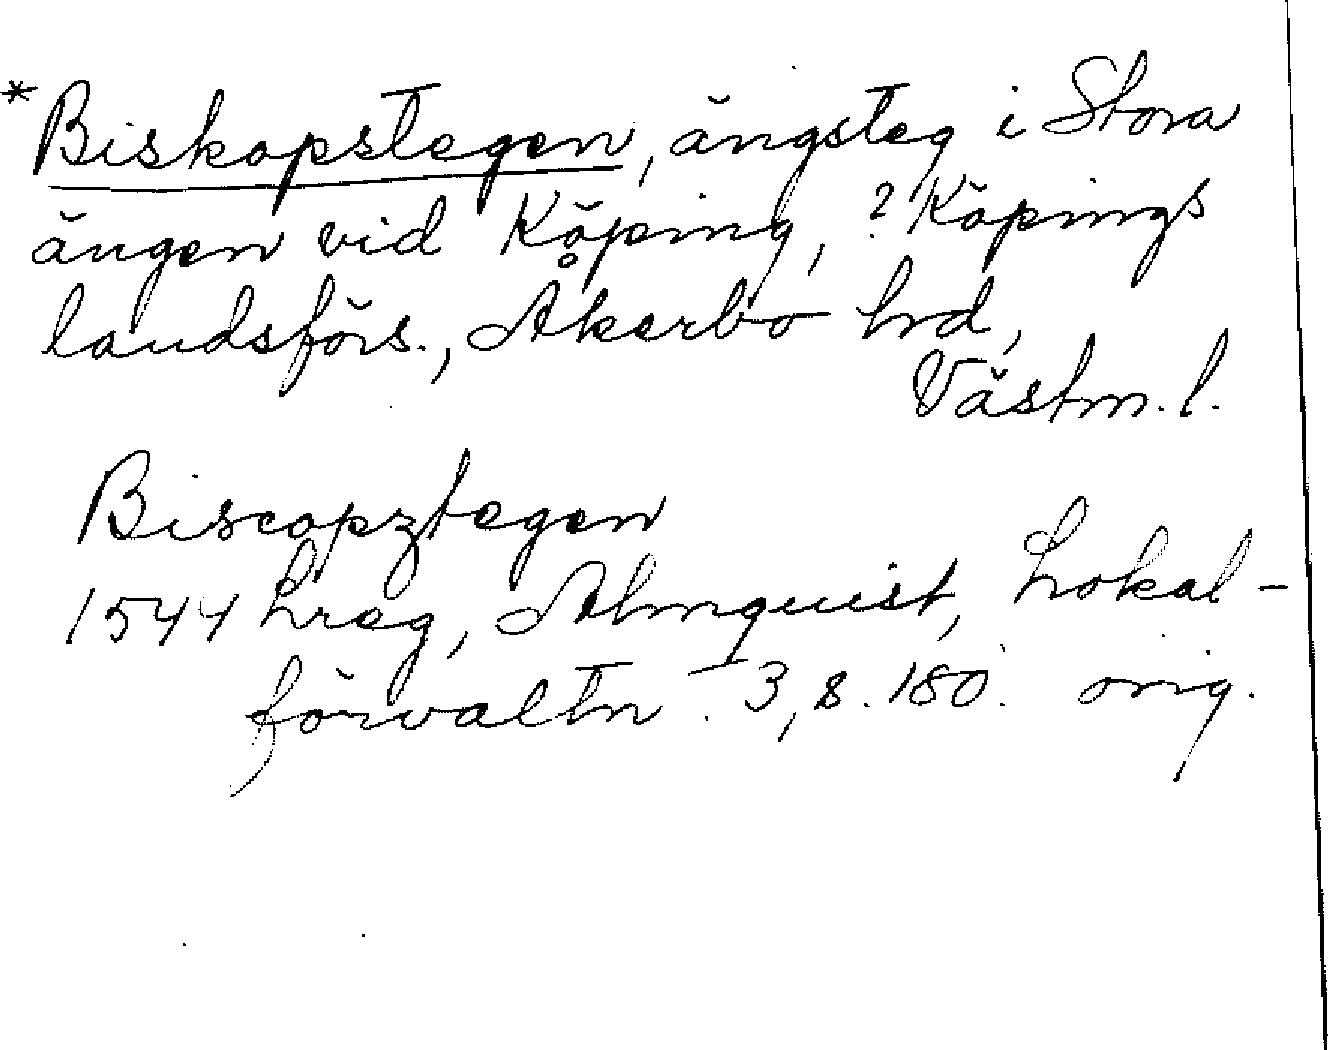 *Biskopstegen, ängsteg i Stora
ängen vid Köping, ? Köpings
landsförs., Åkerbo hrd,
Västm. l.
Biscopztegen
1544 Lreg, Almquist, Lokal-
förvaltn. I 3, s. 180. orig.